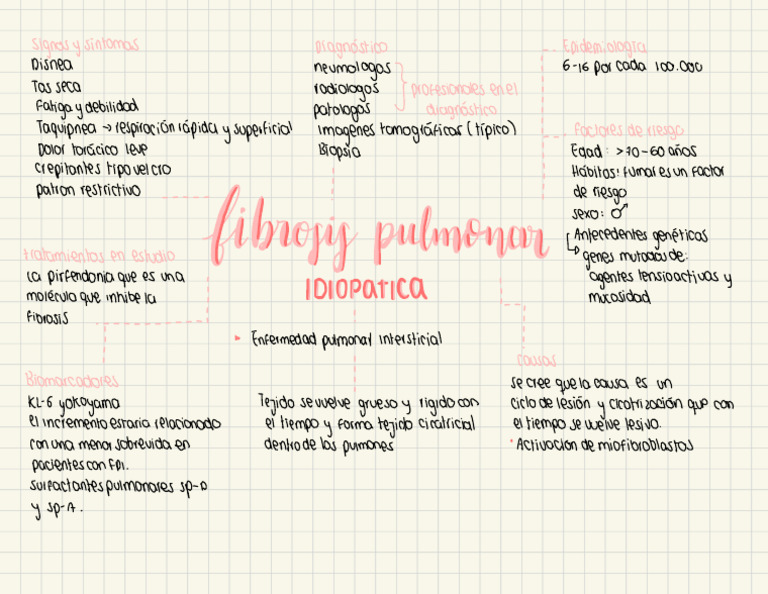 signos y sintomas
Disnea
Tos seca
Fatiga y debilidad
Taquipnea → respiración rápida y superficial
Dolor torácico leve
crepitantes tipo velcro
patron restrictivo
Diagnóstico
neumologos
radiologos
patologos
profesionales en el
diagnóstico
Imagenes tomográficas (típico)
Biopsia
Epidemiologia
6-16 por cada 100.000
Factores de riesgo
Edad: >70-60 años
Hábitos: fumar es un factor
de riesgo
sexo: ♂
Antecedentes genéticos
genes mutados de:
agentes tensioactivas y
mucosidad
fibrosis pulmonar
IDIOPATICA
tratamientos en estudio
La pirfendonia que es una
molécula que inhibe la
fibrosis
• Enfermedad pulmonar intersticial
Biomarcadores
KL-6 yokoyama
el incremento estaria relacionado
con una menor sobrevida en
pacientes con FPI.
surfactantes pulmonares sp-D
y sp-A.
Tejido se vuelve grueso y rigido con
el tiempo y forma tejido cicatricial
dentro de los pulmones
causas
se cree que la causa es un
ciclo de lesión y cicatrización que con
el tiempo se vuelve lesivo.
• Activacion de miofibroblastos